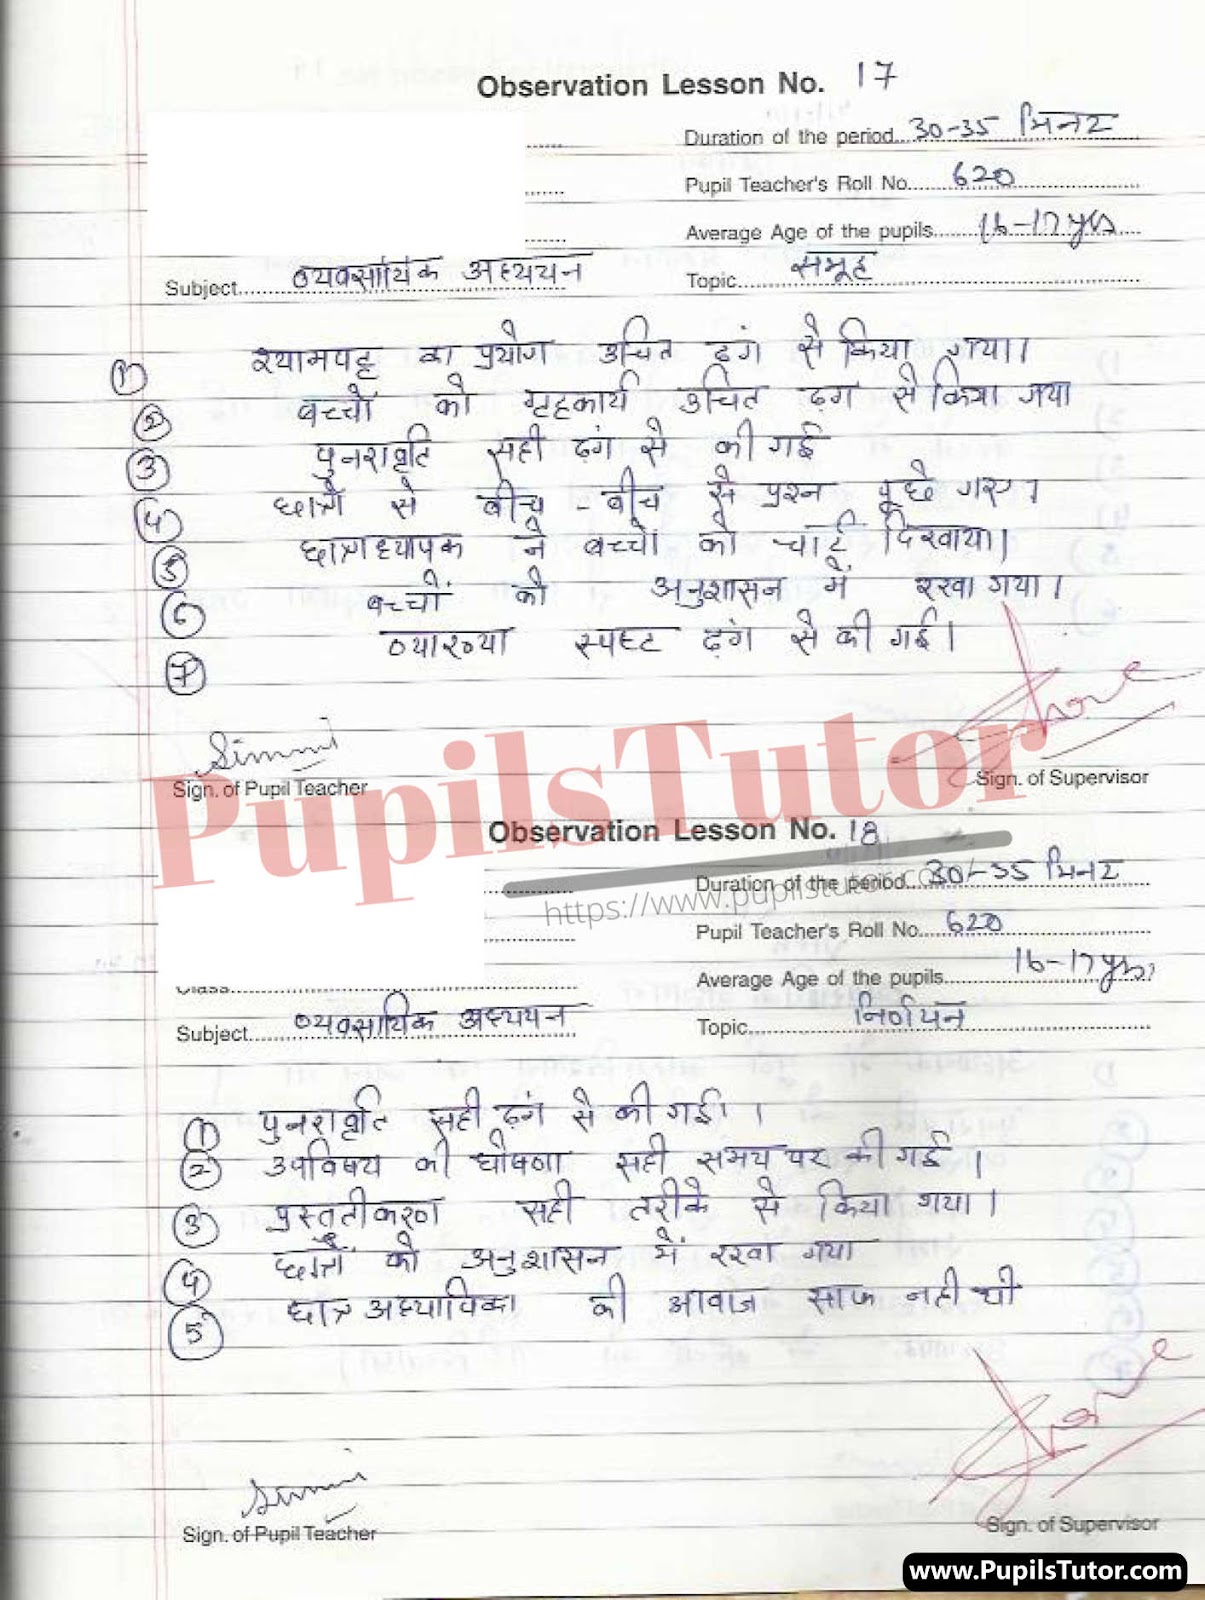 Observation Lesson No. 17
Duration of the period 30-35 मिनट
Pupil Teacher's Roll No. 620
Average Age of the pupils 16-17 yrs
Subject व्यवसायिक अध्ययन Topic समूह
1 श्यामपट्ट का प्रयोग उचित ढंग से किया गया।
2 बच्चों को गृहकार्य उचित ढंग से किया गया
3 पुनरावृति सही ढंग से की गई
4 छात्रों से बीच - बीच से प्रश्न पूछे गए।
5 छात्राध्यापक ने बच्चों को चार्ट दिखाया।
6 बच्चों को अनुशासन में रखा गया।
7 व्याख्या स्पष्ट ढंग से की गई।
Simmi
Sign. of Pupil Teacher Sign. of Supervisor
PupilsTutor
https://www.pupilstutor.co
Observation Lesson No. 18
Duration of the period 30-35 मिनट
Pupil Teacher's Roll No. 620
Average Age of the pupils 16-17 yrs,
Class
Subject व्यवसायिक अध्ययन Topic निर्णयन
1 पुनरावृति सही ढंग से की गई। ।
2 उपविषय की घोषणा सही समय पर की गई।
3 प्रस्तुतीकरण सही तरीके से किया गया।
4 छात्रों को अनुशासन में रखा गया
5 छात्र अध्यापिका की आवाज साफ नही थी
Simmi
Sign. of Pupil Teacher Sign. of Supervisor
www.PupilsTutor.com